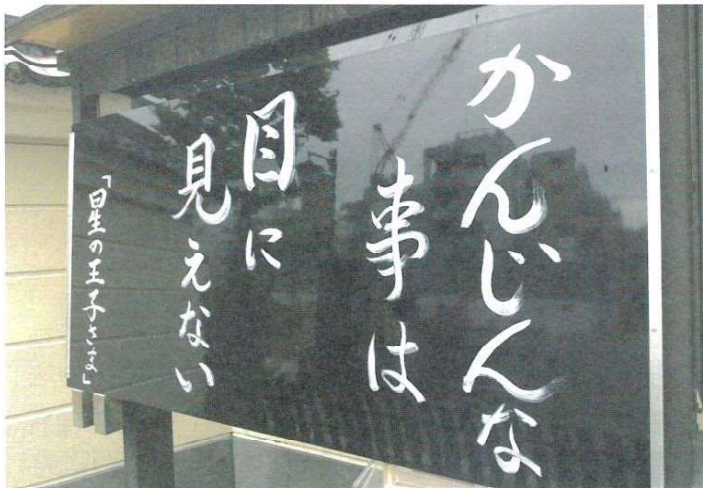 かんじんな
事は
目に
見えない
「星の王子さま」